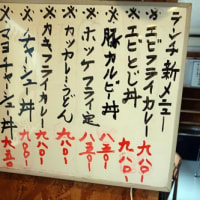 ランチ新メニュー
※エビフライカレー 九八〇ー
※エビとじ丼 九八〇ー
※豚カルビー丼 八五〇ー
※ホッケフライ定 八五〇ー
※カツカレーうどん 九八〇ー
※カキフライカレー 九八〇ー
※チャーシュー丼
※マヨチャーシュー丼 九五〇ー